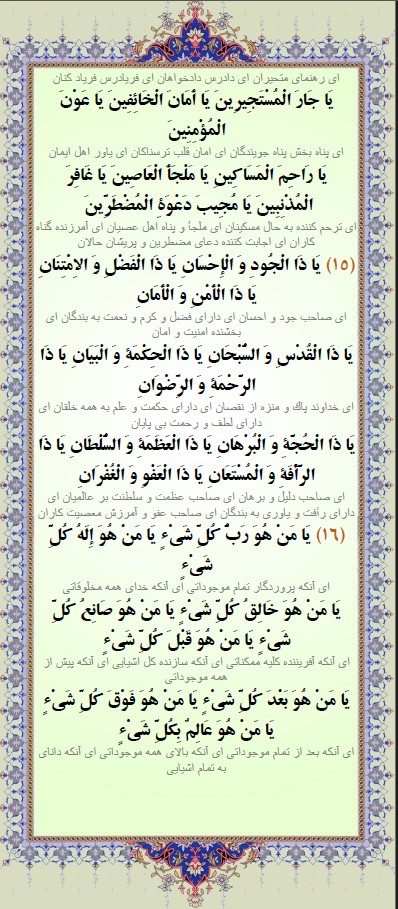 ای رهنمای متحیران ای دادرس دادخواهان ای فریادرس فریاد کنان
يَا جَارَ الْمُسْتَجِيرِينَ يَا أَمَانَ الْخَائِفِينَ يَا عَوْنَ
الْمُؤْمِنِينَ
ای پناه بخش پناه جویندگان ای امان قلب ترسناکان ای یاور اهل ایمان
يَا رَاحِمَ الْمَسَاكِينِ يَا مَلْجَأَ الْعَاصِينَ يَا غَافِرَ
الْمُذْنِبِينَ يَا مُجِيبَ دَعْوَةِ الْمُضْطَرِّينَ
ای ترحم کننده به حال مسکینان ای ملجأ و پناه اهل عصیان ای آمرزنده گناه
کاران ای اجابت کننده دعای مضطرین و پریشان حالان
(۱۵) يَا ذَا الْجُودِ وَ الْإِحْسَانِ يَا ذَا الْفَضْلِ وَ الامْتِنَانِ
يَا ذَا الْأَمْنِ وَ الْأَمَانِ
ای صاحب جود و احسان ای دارای فضل و کرم و نعمت به بندگان ای
بخشنده امنیت و امان
يَا ذَا الْقُدْسِ وَ السُّبْحَانِ يَا ذَا الْحِكْمَةِ وَ الْبَيَانِ يَا ذَا
الرَّحْمَةِ وَ الرِّضْوَانِ
ای خداوند پاک و منزه از نقصان ای دارای حکمت و علم به همه خلقان ای
دارای لطف و رحمت بی پایان
يَا ذَا الْحُجَّةِ وَ الْبُرْهَانِ يَا ذَا الْعَظَمَةِ وَ السُّلْطَانِ يَا ذَا
الرَّأْفَةِ وَ الْمُسْتَعَانِ يَا ذَا الْعَفْوِ وَ الْغُفْرَانِ
ای صاحب دلیل و برهان ای صاحب عظمت و سلطنت بر عالمیان ای
دارای رأفت و یاوری به بندگان ای صاحب عفو و آمرزش معصیت کاران
(۱۶) يَا مَنْ هُوَ رَبُّ كُلِّ شَيْءٍ يَا مَنْ هُوَ إِلَهُ كُلِّ
شَيْءٍ
ای آنکه پروردگار تمام موجوداتی ای آنکه خدای همه مخلوقاتی
يَا مَنْ هُوَ خَالِقُ كُلِّ شَيْءٍ يَا مَنْ هُوَ صَانِعُ كُلِّ
شَيْءٍ يَا مَنْ هُوَ قَبْلَ كُلِّ شَيْءٍ
ای آنکه آفریننده کلیه ممکناتی ای آنکه سازنده کل اشیایی ای آنکه پیش از
همه موجوداتی
يَا مَنْ هُوَ بَعْدَ كُلِّ شَيْءٍ يَا مَنْ هُوَ فَوْقَ كُلِّ شَيْءٍ
يَا مَنْ هُوَ عَالِمٌ بِكُلِّ شَيْءٍ
ای آنکه بعد از تمام موجوداتی ای آنکه بالای همه موجوداتی ای آنکه دانای
به تمام اشیایی